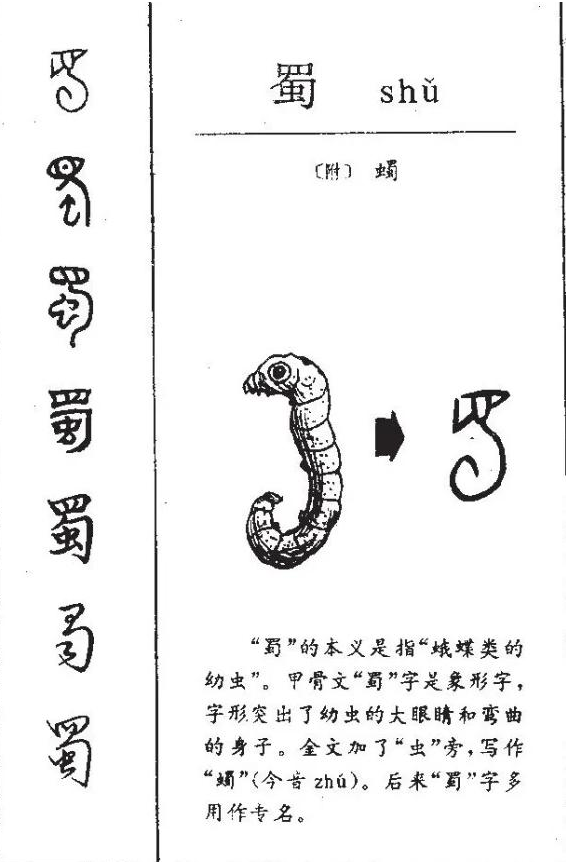 蜀 shǔ
〔附〕 蠋
“蜀”的本义是指“蛾蝶类的
幼虫”。甲骨文“蜀”字是象形字，
字形突出了幼虫的大眼睛和弯曲
的身子。金文加了“虫”旁，写作
“蠋”(今音zhú)。后来“蜀”字多
用作专名。
蜀
蜀